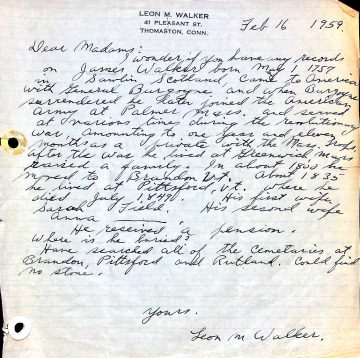 LEON M. WALKER
41 PLEASANT ST.
THOMASTON, CONN.
Feb 16 1959.
Dear Madams:
I wonder if you have any records
on James Walker born May 1757
in Scotland Came to America
with General Burgoyne and when Burgoy
surrendered he later joined the American
Army at Palmer Mass. and served
at various times during the revolutionary
war, amounting to one year and eleven
months as a private with the Mass. troops
after the war he lived at Greenwich Mass
raised a family. In about 1800 he
moved to Brandon Vt. About 1835
he lived at Pittsford, Vt. where he
died July 1847. His first wife
Sarah Field. His second wife
Anna
He received a pension.
Where is he buried?
Have searched all of the Cemetaries at
Brandon, Pittsford and Rutland. Could find
no stone.
Yours.
Leon M Walker.